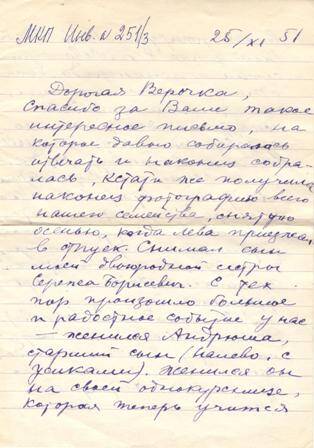 МКП Инв. N 251/3
25/XI 51
Дорогая Верочка,
Спасибо за Ваше такое
интересное письмо, на
которое давно собиралась
отвечать и наконец собра-
лась, кстати же получила
наконец фотографию всего
нашего семейства, снятую
осенью, когда Лева приезжал
в отпуск. Снимал сын
моей двоюродной сестры
Сережа Борисевич. С тех
пор произошло большое
и радостное событие у нас
– женился Андрюша,
старший сын (налево, с
усиками). Женился он
на своей однокурснице,
которая теперь учится